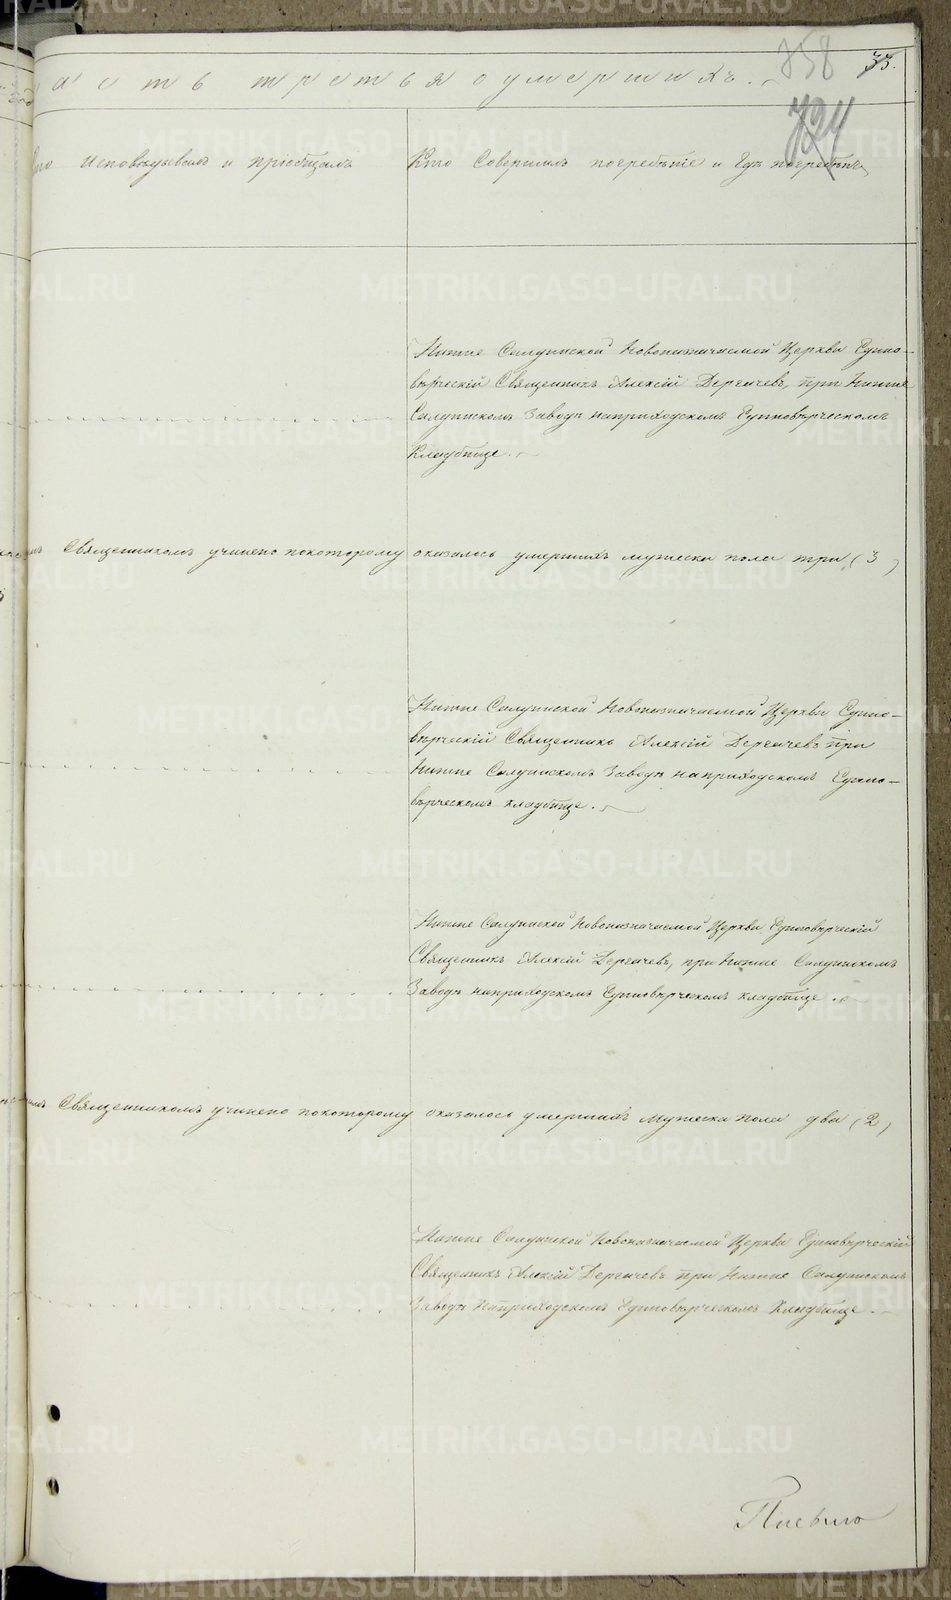 358
33.
асть третья о умершихъ.
724
Кто Исповѣдывалъ и пріобщалъ
Кто Совершилъ погребѣніе и Гдѣ погребѣнъ
Нижне Салдинской Новоназначаемой Церкви Едино-
вѣрческій Священникъ Алексій Дергачевъ, при Нижне
Салдинскомъ Заводѣ на приходскомъ Единовѣрческомъ
Кладбище.
Священникомъ учинено по которому оказалось умершихъ мужеска пола три (3)
Нижне Салдинской Новоназначаемой Церкви Едино-
вѣрческій Священникъ Алексій Дергачевъ при
Нижне Салдинскомъ Заводѣ на приходскомъ Едино-
вѣрческомъ кладбище.
Нижне Салдинской Новоназначаемой Церкви Единовѣрческій
Священникъ Алексій Дергачевъ, при Нижне Салдинскомъ
Заводѣ на приходскомъ Единовѣрческомъ кладбище.
Священникомъ учинено по которому оказалось умершихъ мужеска пола два (2)
Нижне Салдинской Новоназначаемой Церкви Единовѣрческій
Священникъ Алексій Дергачевъ при Нижне Салдинскомъ
Заводѣ на приходскомъ Единовѣрческомъ Кладбище.
METRIKI.GASO-URAL.RU